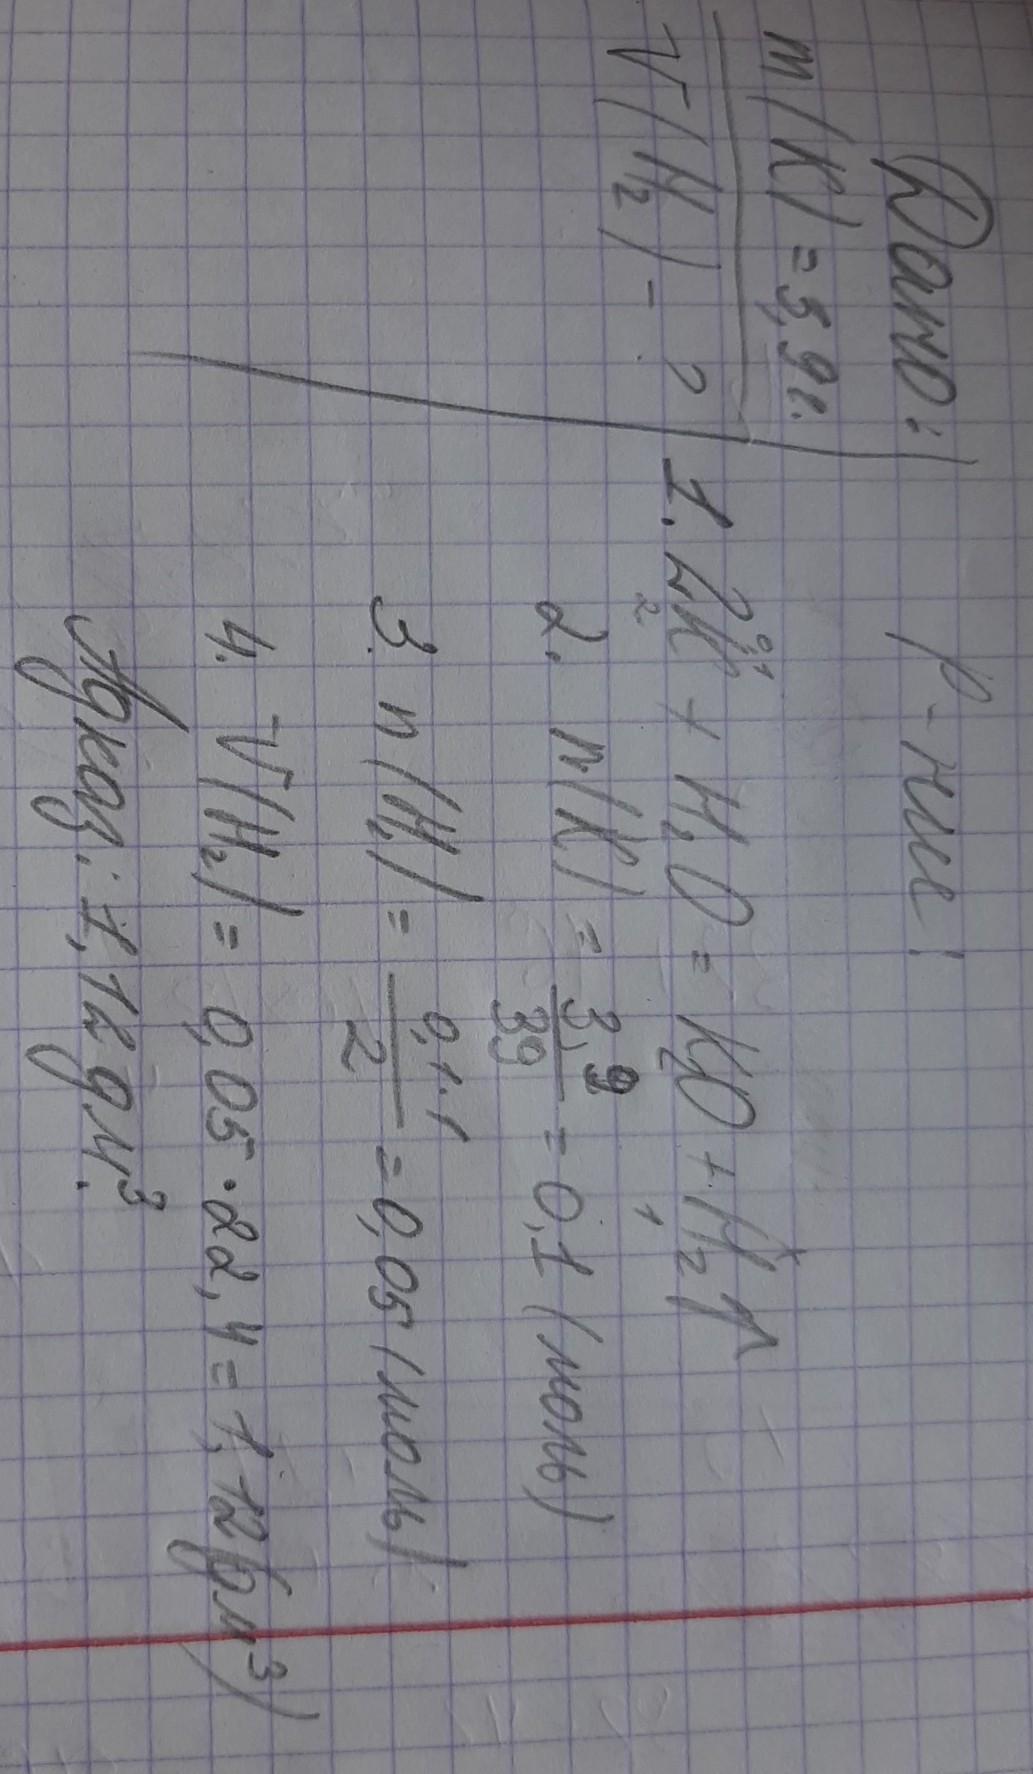 Дано:
m(K) = 3,9г.
V(H₂) - ?
Р-ние:
1. 2K + H₂O = K₂O + H₂↑
2. n(K) = 3,9/39 = 0,1 (моль)
3. n(H₂) = 0,1·1/2 = 0,05 (моль)
4. V(H₂) = 0,05·22,4 = 1,12 (дм³)
Адказ: 1,12 дм³.